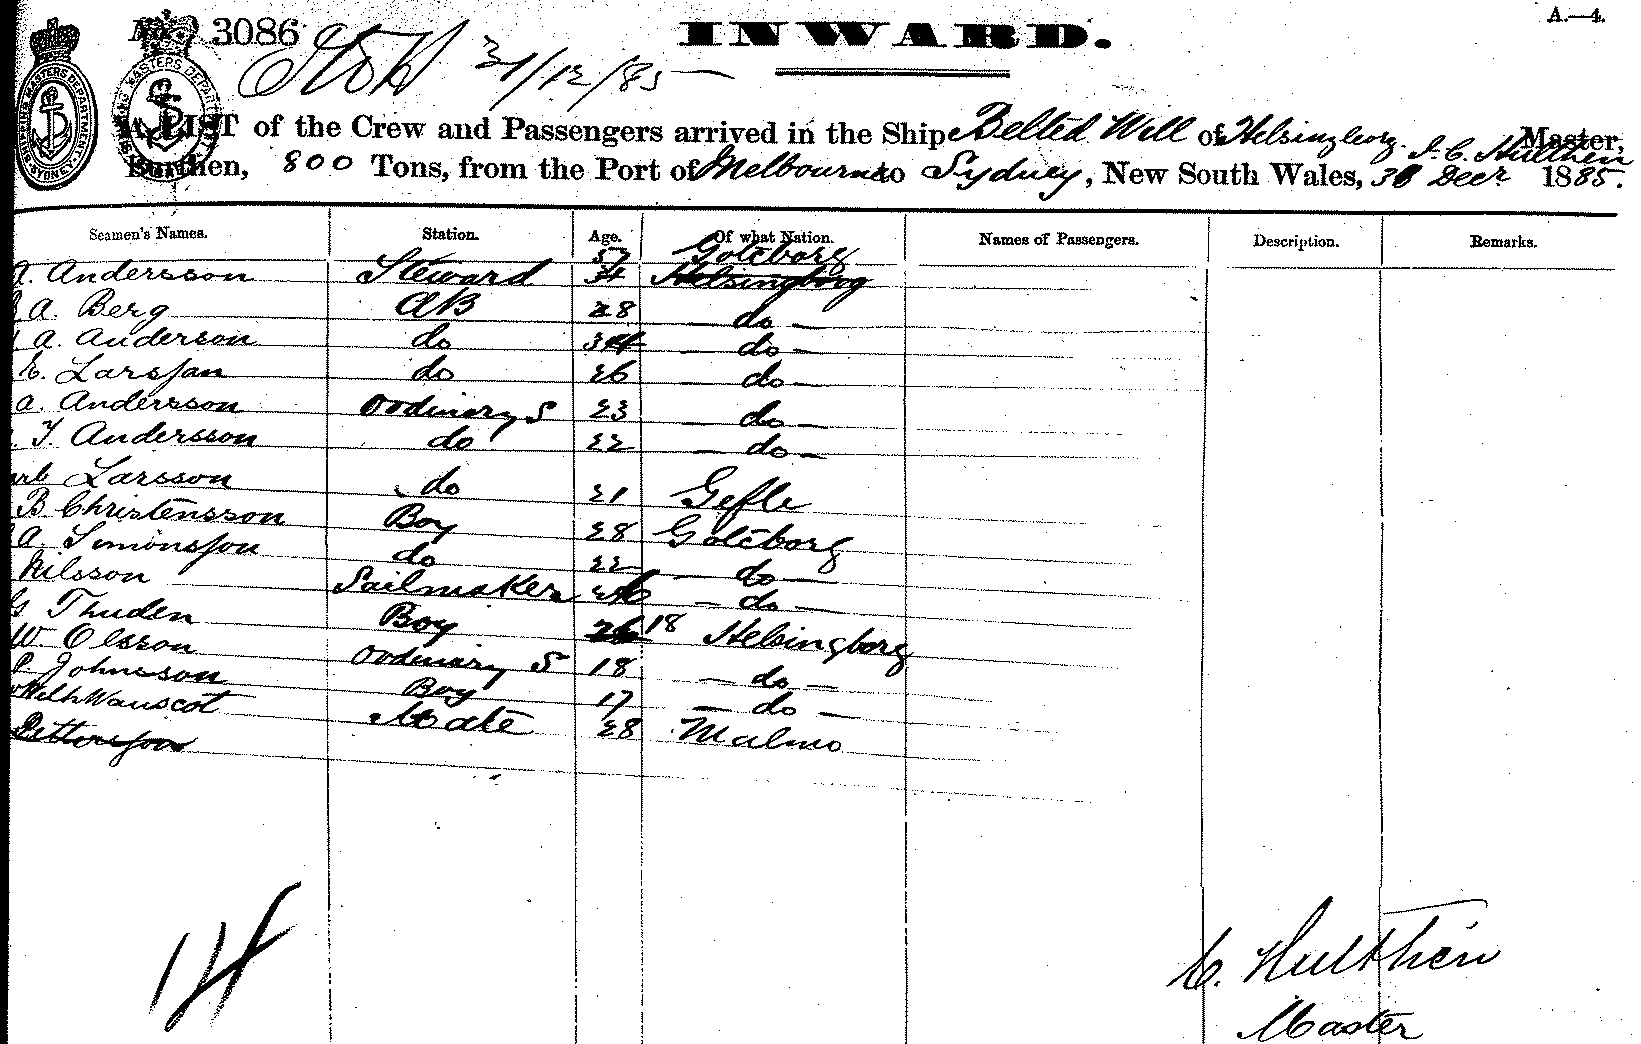 No. 3086 31/12/85 INWARD. A.—4.
A LIST of the Crew and Passengers arrived in the Ship Belted Will of Helsingborg. I. C. Hulthen Master,
Burthen, 800 Tons, from the Port of Melbourne to Sydney, New South Wales, 30 Decr 1885.
Seamen's Names. Station. Age. Of what Nation. Names of Passengers. Description. Remarks.
A. Andersson Steward 57 Goteborg Helsingborg
A. Berg AB 28 — do —
A. Anderson do 34 — do —
E. Larsson do 26 — do —
a. Andersson Ordinary S 23 — do —
T. Andersson do 22 — do —
Larsson do 21 Gefle
B Christensson Boy 28 Goteborg
a. Simonsson do 22 — do —
Nilsson Sailmaker — do —
Thuden Boy 26 18 Helsingborg
W Olsson Ordinary S 18 — do —
P. Johnsson Boy 17 — do —
Wauscot Mate 28 Malmo
Pettersson
14
C. Hulthén
Master